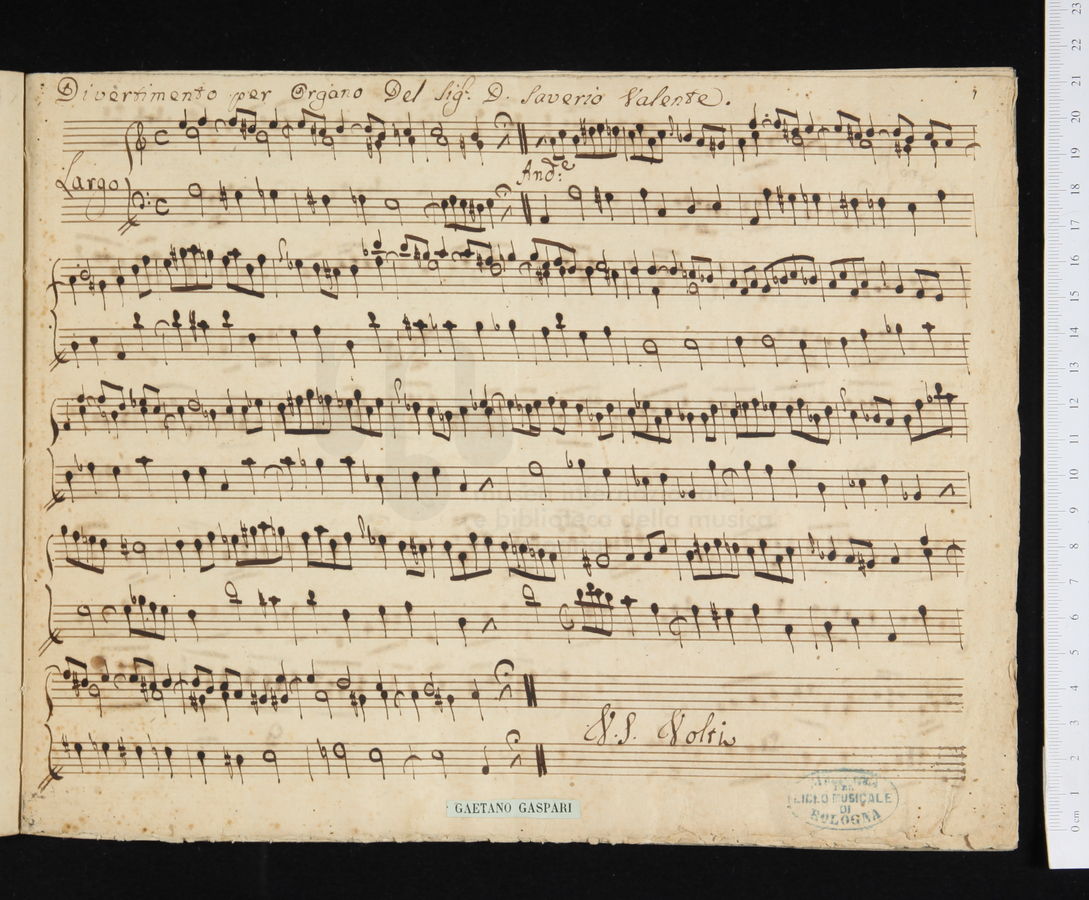 Divertimento per Organo Del Sig: D. Saverio Valente.
1
Largo
And:e
e biblioteca della musica
V.S. Volti
GAETANO GASPARI
LICEO MUSICALE
DI
BOLOGNA
0 cm 1 2 3 4 5 6 7 8 9 10 11 12 13 14 15 16 17 18 19 20 21 22 23